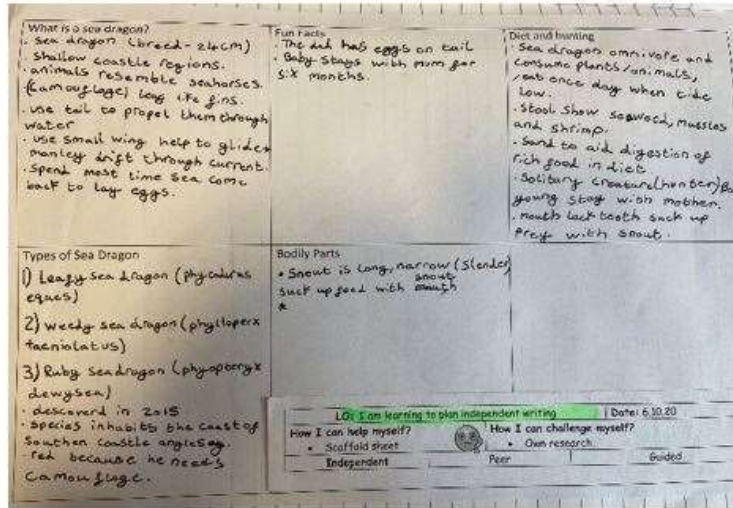 What is a sea dragon?
· Sea dragon (breed - 24cm)
shallow coastle regions.
· animals resemble seahorses.
(camouflage) long life fins.
· use tail to propel them through
water
· use small wing help to glide
manley drift through current.
· spend most time sea come
back to lay eggs.
Fun Facts
· The dad has eggs on tail
· Baby stays with mum for
six months.
Diet and hunting
· Sea dragon omnivore and
consume plants/animals,
eat once day when tide
low.
· Stool show seaweed, mussles
and shrimp.
· Sand to aid digestion of
rich food in diet
· Solitary creature (hunter)
young stay with mother.
· mouth lack tooth suck up
prey with snout.
Types of Sea Dragon
1) Leafy sea dragon (phycodurus
eques)
2) weedy sea dragon (phylloperx
taeniolatus)
3) Ruby seadragon (phyopteryx
dewysea)
· descoverd in 2015
· species inhabits the coast of
Southen coastle anglesey.
red because he needs
camouflage.
Bodily Parts
• Snout is long, narrow (slender)
snout
suck up food with mouth
LO: I am learning to plan independent writing
Date: 6.10.20
How I can help myself?
• Scaffold sheet
How I can challenge myself?
• Own research
Independent
Peer
Guided